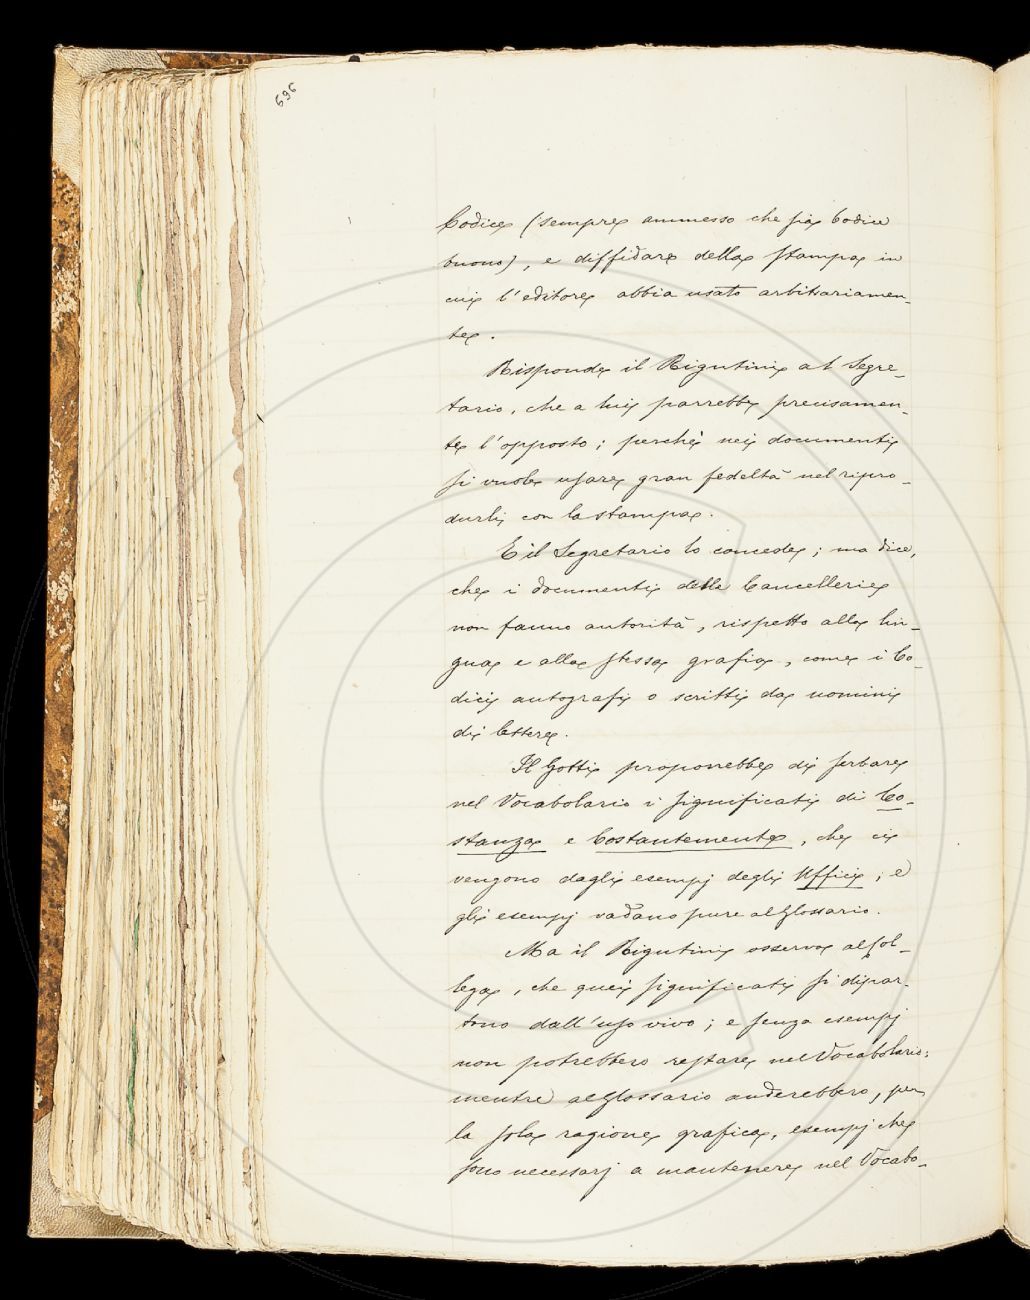 696
Codice (sempre ammesso che sia Codice
buono), e diffidare della stampa in
cui l'editore abbia usato arbitrariamen-
te.
Risponde il Rigutini al Segre-
tario, che a lui parrebbe precisamen-
te l'opposto; perchè nei documenti
si vuole usare gran fedeltà nel ripro-
durli con la stampa.
E il Segretario lo concede; ma dice,
che i documenti delle Cancellerie
non fanno autorità, rispetto alla lin-
gua e alla stessa grafia, come i Co-
dici autografi o scritti da uomini
di lettere.
Il Gotti proporrebbe di serbare
nel Vocabolario i significati di Co-
stanza e Costantemente, che ci
vengono dagli esempj degli Uffici; e
gli esempj vadano pure al Glossario.
Ma il Rigutini osserva al Col-
lega, che quei significati si dipar-
tono dall'uso vivo; e senza esempj
non potrebbero restare nel Vocabolario:
mentre al Glossario anderebbero, per
la sola ragione grafica, esempj che
sono necessarj a mantenere nel Vocabo-